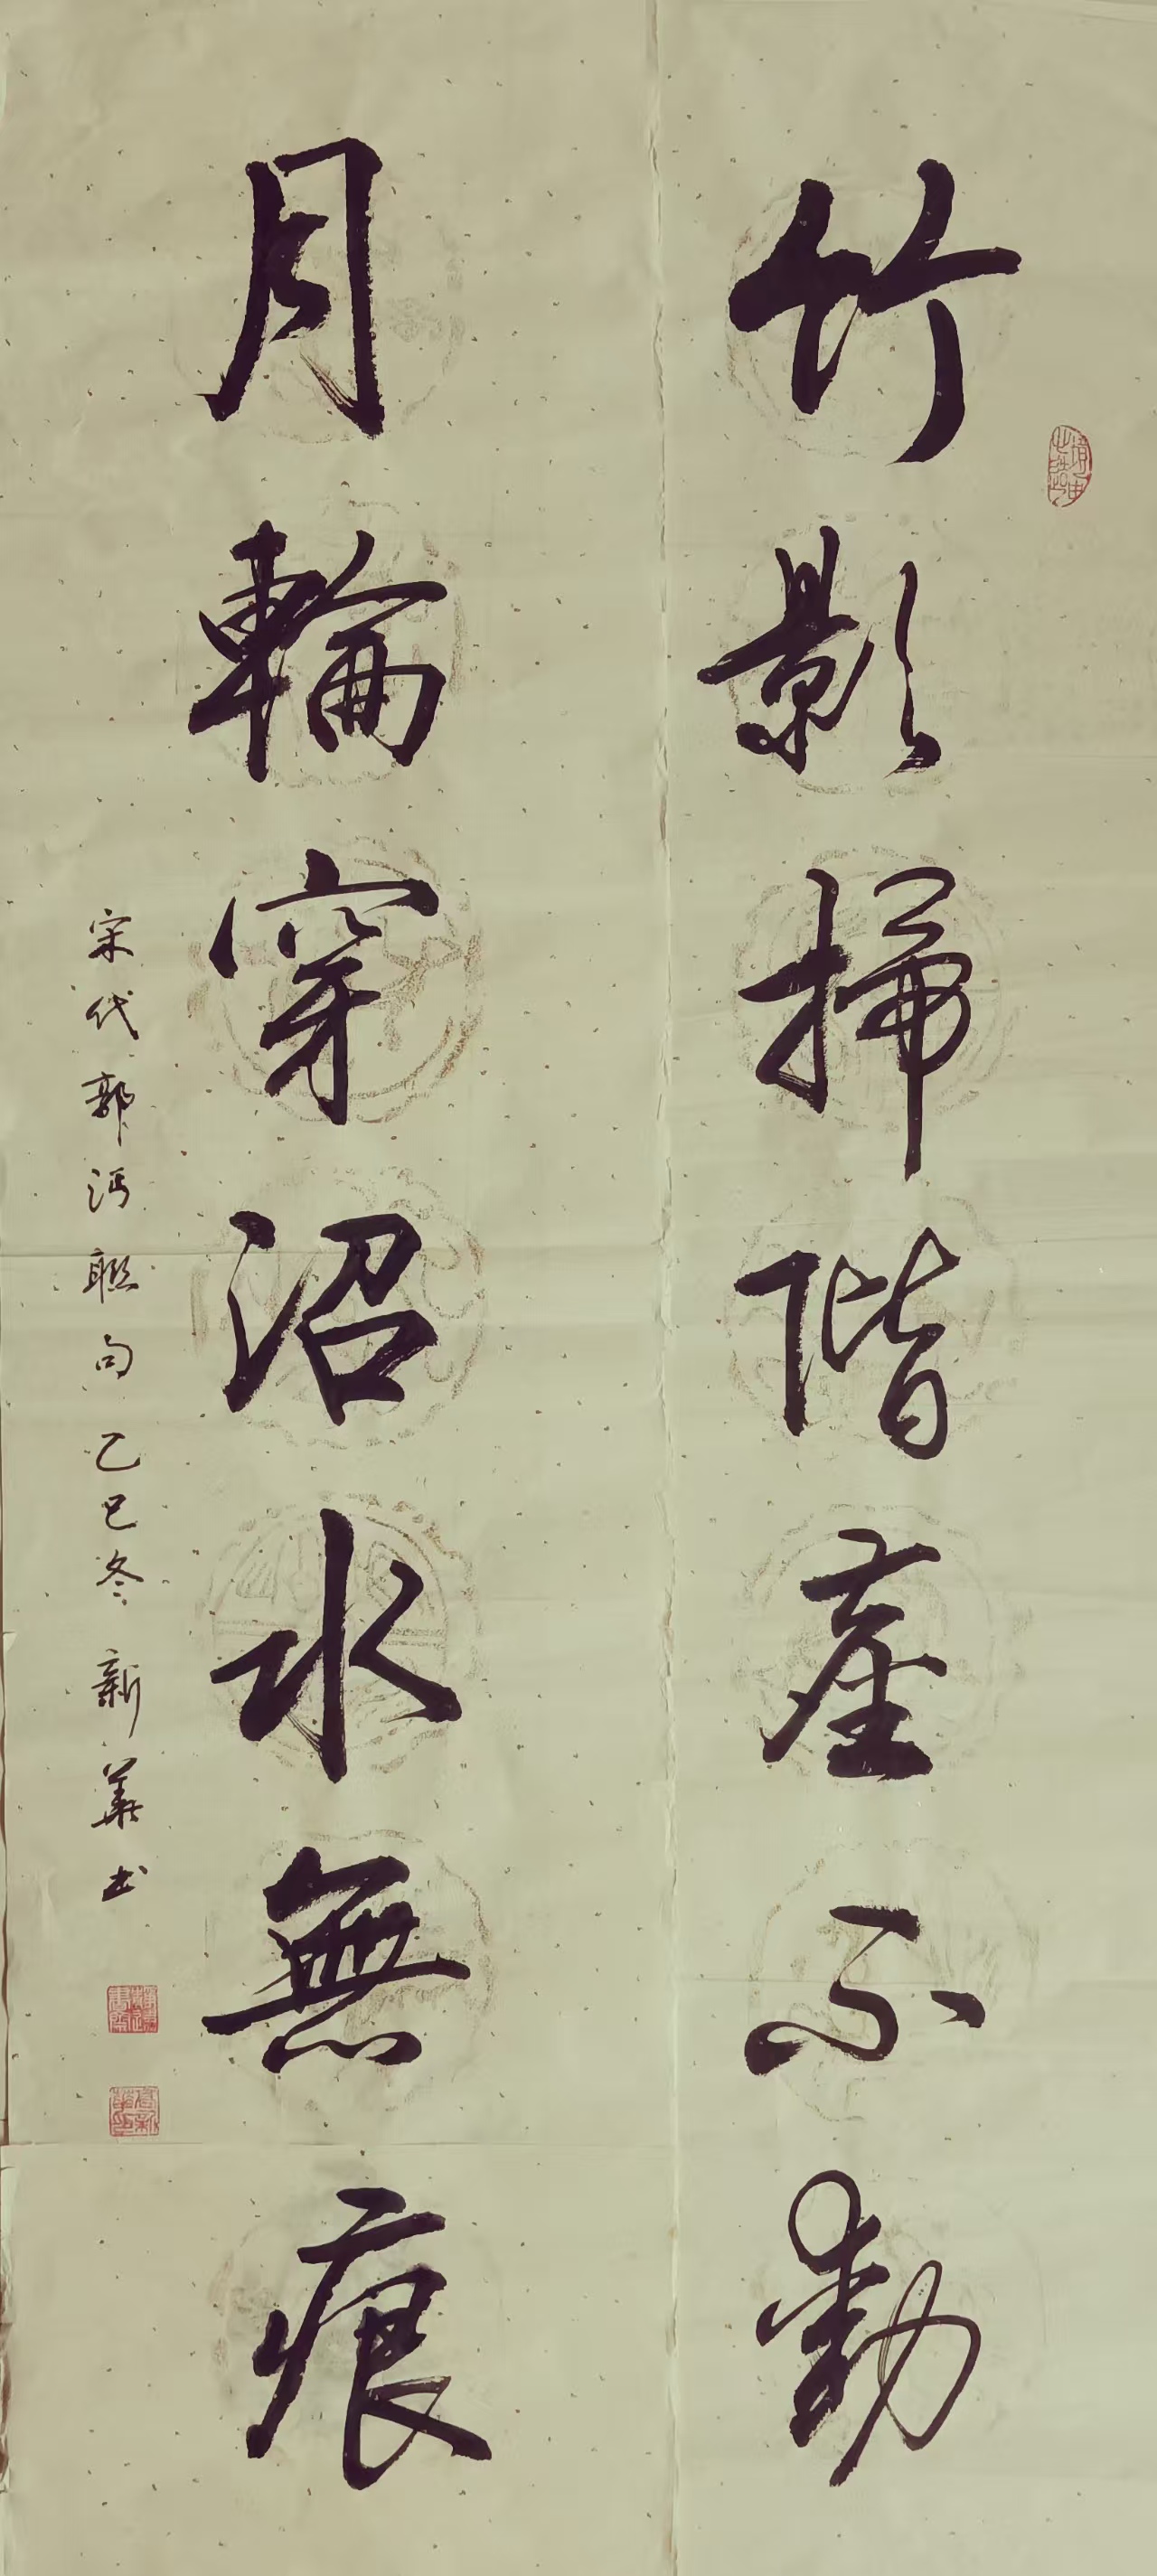 竹影掃階塵不動
月輪穿沼水無痕
宋代郭沔聯句乙巳冬新華书